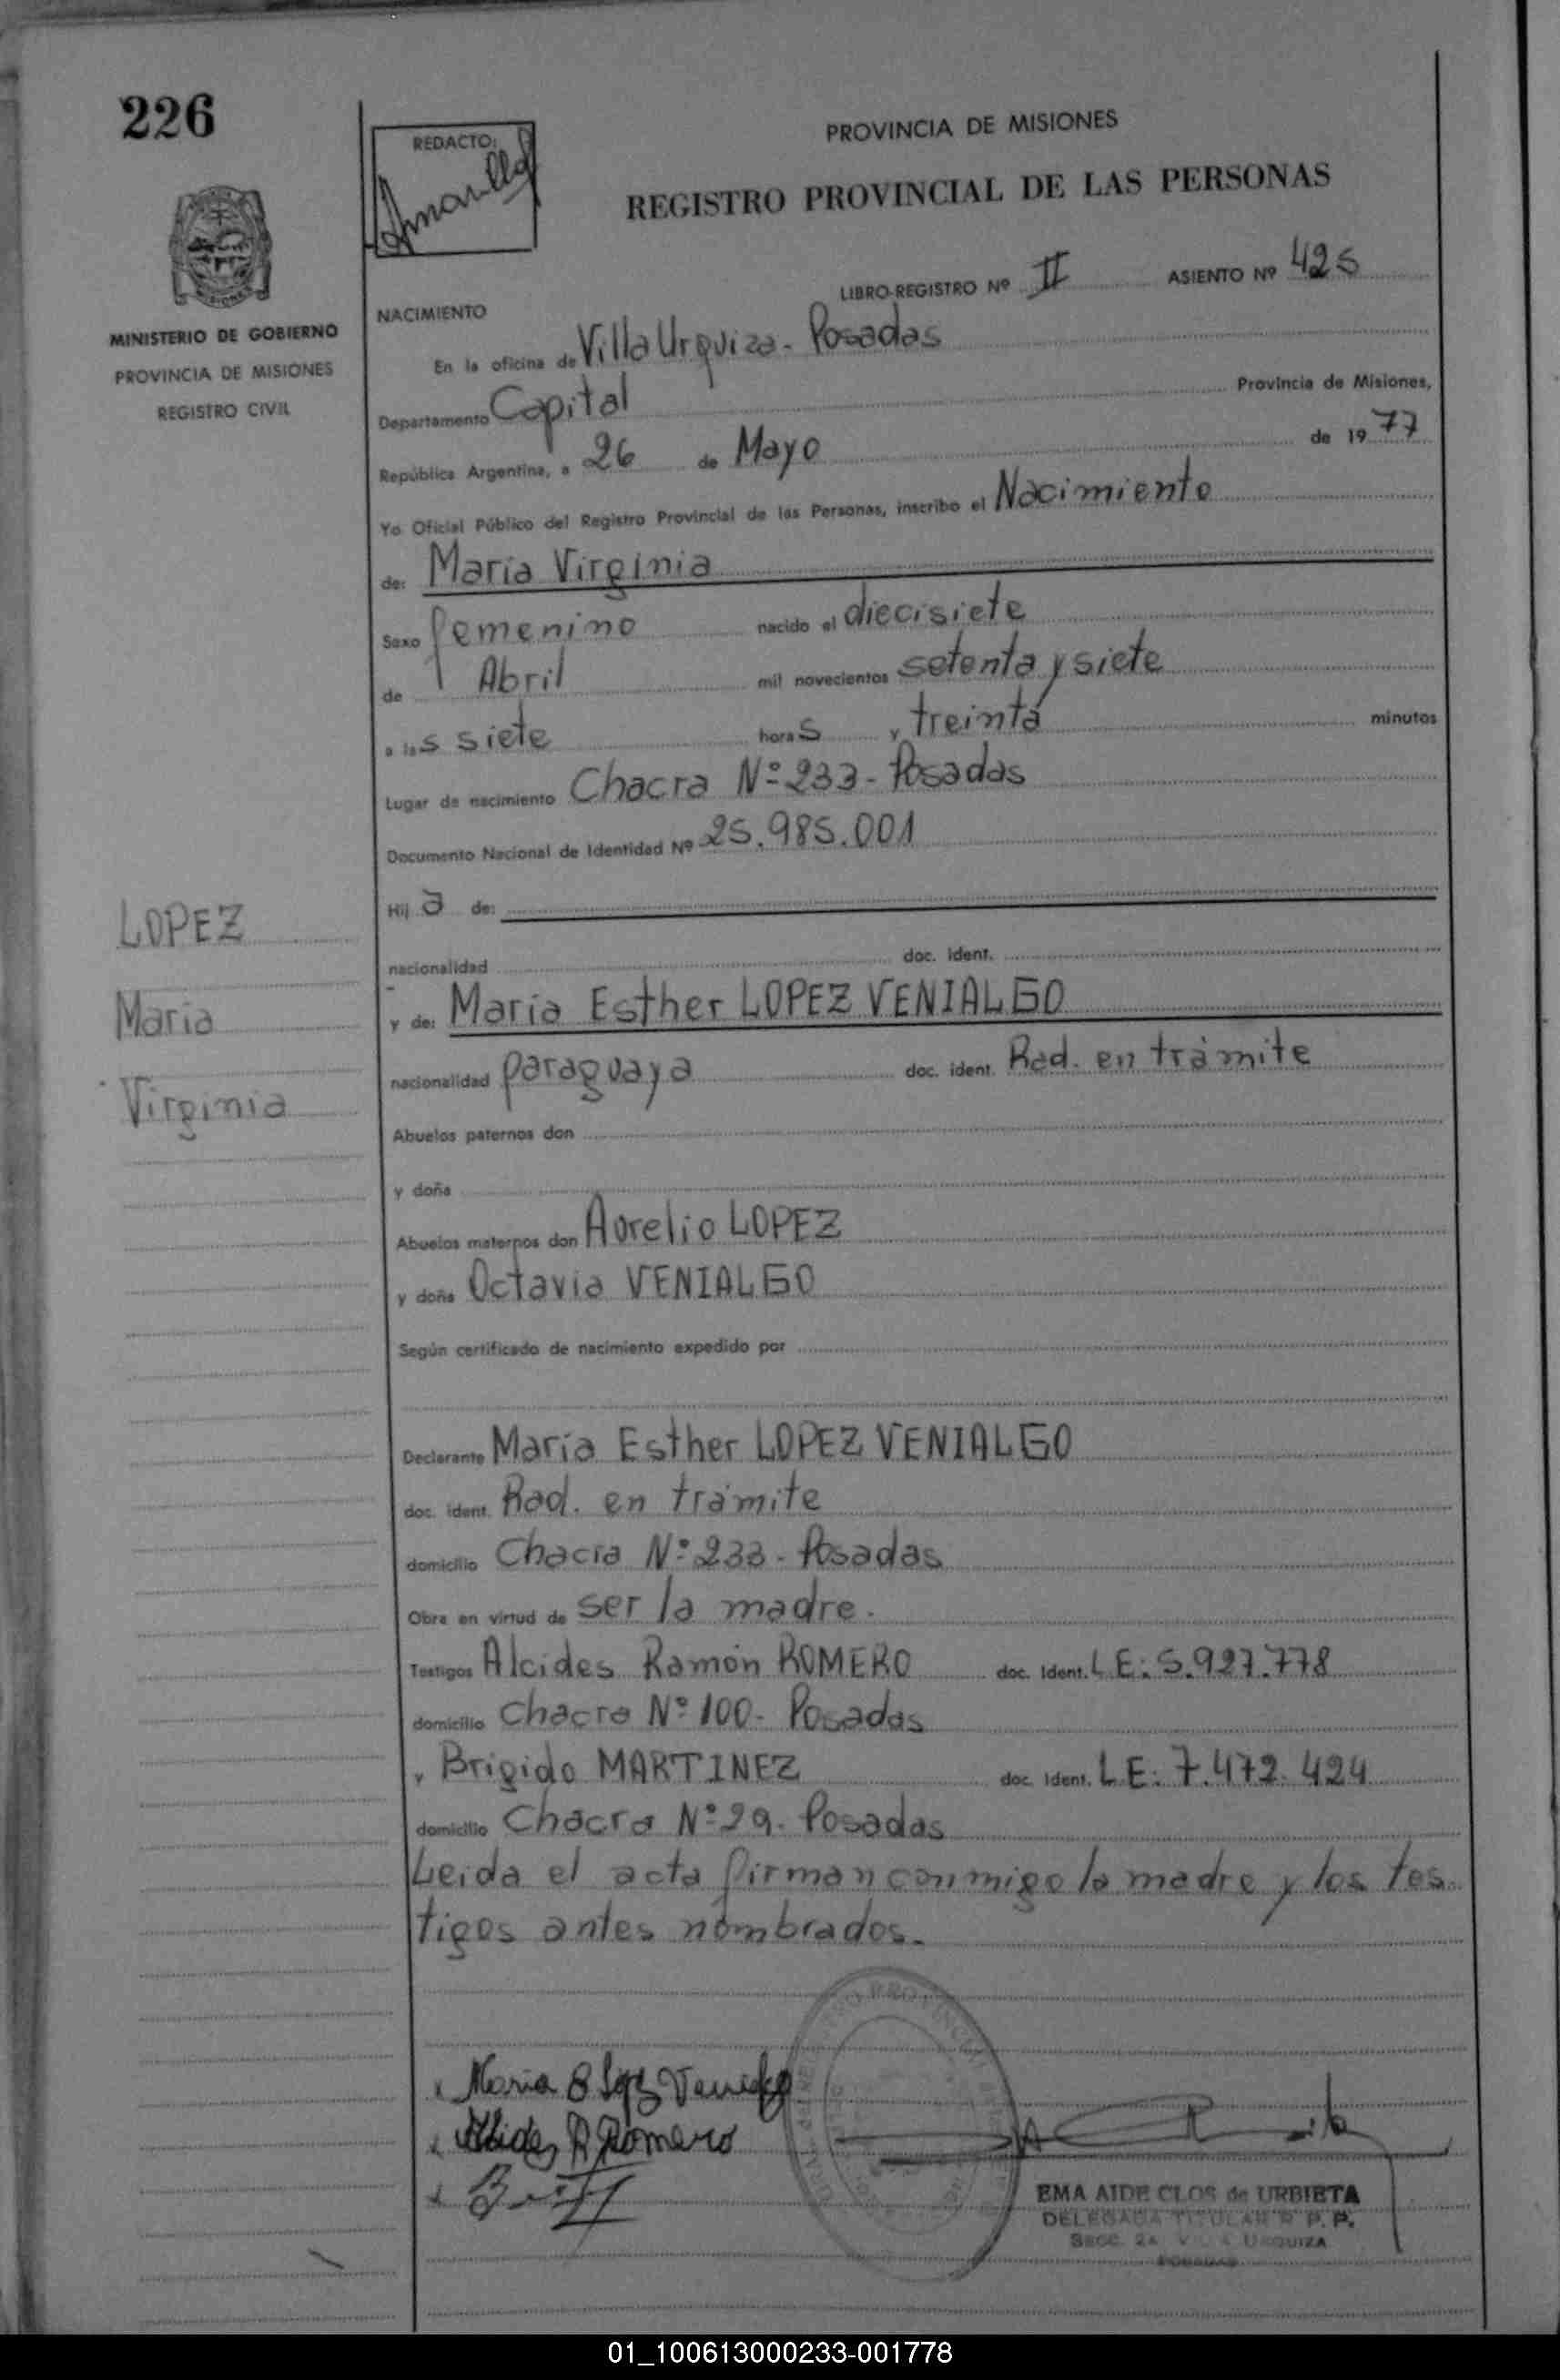 226
REDACTO:
PROVINCIA DE MISIONES
REGISTRO PROVINCIAL DE LAS PERSONAS
LIBRO-REGISTRO Nº II ASIENTO Nº 425
MINISTERIO DE GOBIERNO
PROVINCIA DE MISIONES
REGISTRO CIVIL
NACIMIENTO
En la oficina de Villa Urquiza - Posadas
Departamento Capital Provincia de Misiones,
República Argentina, a 26 de Mayo de 1977
Yo Oficial Público del Registro Provincial de las Personas, inscribo el Nacimiento
de: María Virginia
Sexo femenino nacido el diecisiete
de Abril mil novecientos setenta y siete
a las siete horas y treinta minutos
Lugar de nacimiento Chacra Nº 233 - Posadas
Documento Nacional de Identidad Nº 25.985.001
Hija de:
nacionalidad doc. ident.
y de: María Esther LOPEZ VENIALGO
nacionalidad paraguaya doc. ident. Rad. en trámite
LOPEZ
María
Virginia
Abuelos paternos don
y doña
Abuelos maternos don Aurelio LOPEZ
y doña Octavia VENIALGO
Según certificado de nacimiento expedido por
Declarante María Esther LOPEZ VENIALGO
doc. ident. Rad. en trámite
domicilio Chacra Nº 233 - Posadas
Obra en virtud de ser la madre.
Testigos Alcides Ramón ROMERO doc. ident. LE: 5.927.778
domicilio Chacra Nº 100 - Posadas
y Brigido MARTINEZ doc. ident. L.E: 7.472.424
domicilio Chacra Nº 29 - Posadas
Leida el acta firman conmigo la madre y los tes
tigos antes nombrados.
Maria E Lopez Venialgo
Alcides R Romero
EMA AIDE CLOS de URBIETA
DELEGADA TITULAR R. P. P.
Secc. 2a VILLA URQUIZA
POSADAS
01_100613000233-001778